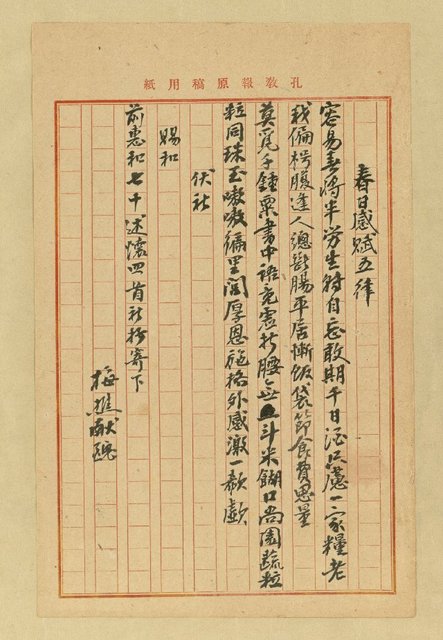 孔教報原稿用紙
春日感賦五律
容易春將半勞生醉自忘敢期千日酒只慮一家糧老
我偏枵腹逢人總斷腸平居慚飯袋節食費思量
莫覓千鍾粟書中語竟虛折腰無斗米餬口尚園蔬粒
粒同珠玉嗷嗷遍里閭厚恩施格外感激一欷歔
伏祈
賜和
前惠和七十述懷四首祈抄寄下
梅樵獻醜